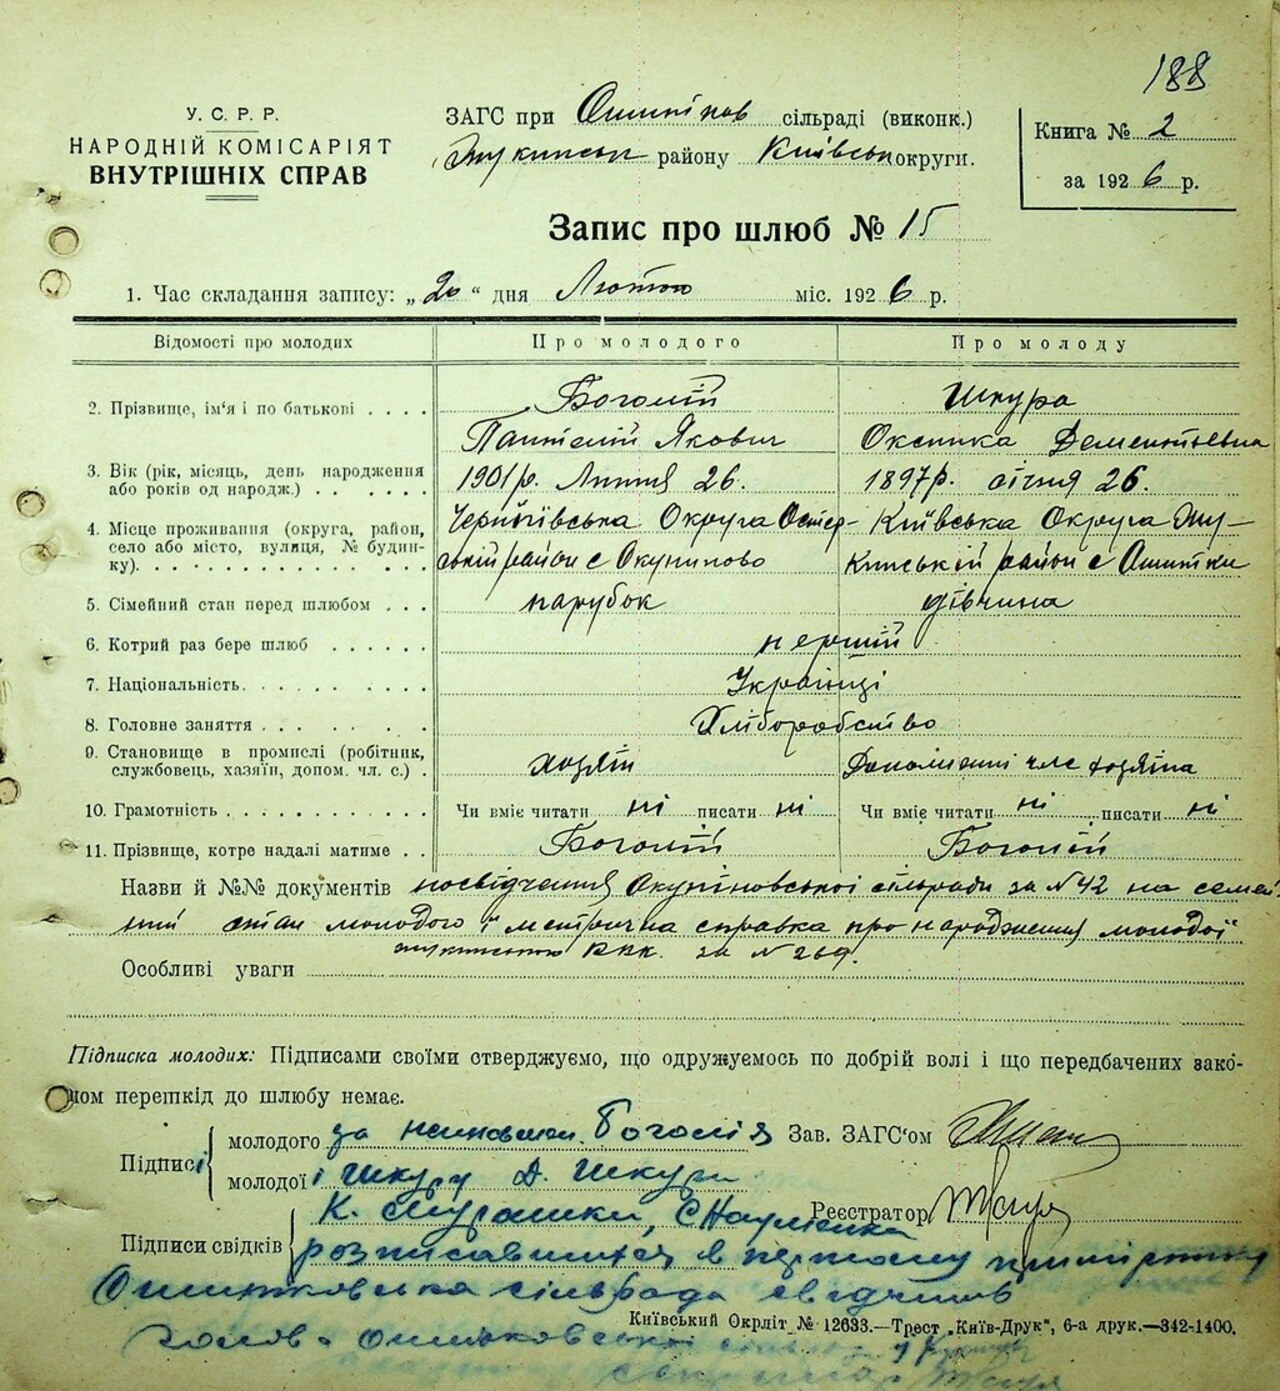 188
У. С. Р. Р.
НАРОДНІЙ КОМІСАРІЯТ
ВНУТРІШНІХ СПРАВ
ЗАГС при Ошитков сільраді (виконк.)
Жукинськ району Київськ округи.
Книга № 2
за 1926 р.
Запис про шлюб № 15
1. Час складання запису: „20“ дня Лютого міс. 1926 р.
Відомості про молодих Про молодого Про молоду
2. Прізвище, ім'я і по батькові . . . . Боголій Шкура
Пантелій Якович Оксенка Дементьевна
3. Вік (рік, місяць, день народження 1901 р. Липня 26. 1897 р. січня 26.
або років од народж.) . . . . . .
4. Місце проживання (округа, район, Чернігівська Округа Остер- Київська Округа Жу-
село або місто, вулиця, № будин- ський район с Окуниново кинський район с Ошитки
ку). . . . . . . . . . . . . .
5. Сімейний стан перед шлюбом . . . парубок дівчина
6. Котрий раз бере шлюб . . . . . . перший
7. Національність. . . . . . . . . Українці
8. Головне заняття . . . . . . . . Хліборобство
9. Становище в промислі (робітник, хозяїн член хозяїна
службовець, хазяїн, допом. чл. с.) .
10. Грамотність . . . . . . . . . . Чи вміє читати ні писати ні Чи вміє читати ні писати ні
11. Прізвище, котре надалі матиме . . Боголій Боголій
Назви й №№ документів посвідчення Окуніновської сільради за №42 на семей
ний стан молодого і метрична справка про народження молодої
Жукинського РВК. за №269.
Особливі уваги
Підписка молодих: Підписами своїми стверджуємо, що одружуємось по добрій волі і що передбачених зако-
ном перешкід до шлюбу немає.
Підписі молодого за Боголія Зав. ЗАГС'ом
молодої і Шкуру Д. Шкура
К. Мурашки, С Науменка Реєстратор
Підписи свідків розписавшихся в
Ошитковська сільрада свідчить
Київський Окрліт № 12633.—Трест „Київ-Друк“, 6-а друк.—342-1400.
голова Ошитковської
секретар